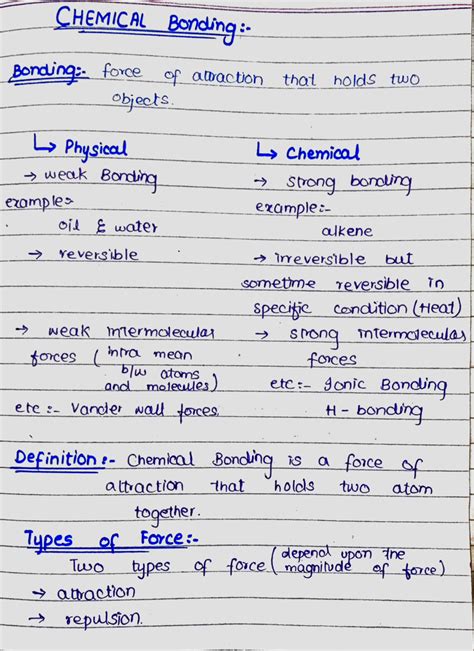 CHEMICAL Bonding:-
Bonding:- force of attraction that holds two
objects.
↳ Physical
→ weak Bonding
example:-
oil & water
→ reversible
→ weak intermolecular
forces ( intra mean
b/w atoms
and molecules)
etc :- Vander wall forces.
↳ Chemical
→ strong bonding
example:-
alkene
→ irreversible but
sometime reversible in
specific condition (Heat)
→ strong intermolecular
forces
etc:- Ionic Bonding
H - bonding
Definition:- Chemical Bonding is a force of
attraction that holds two atom
together.
Types of Force:-
Two types of force (depend upon the
magnitude of force)
→ attraction
→ repulsion.